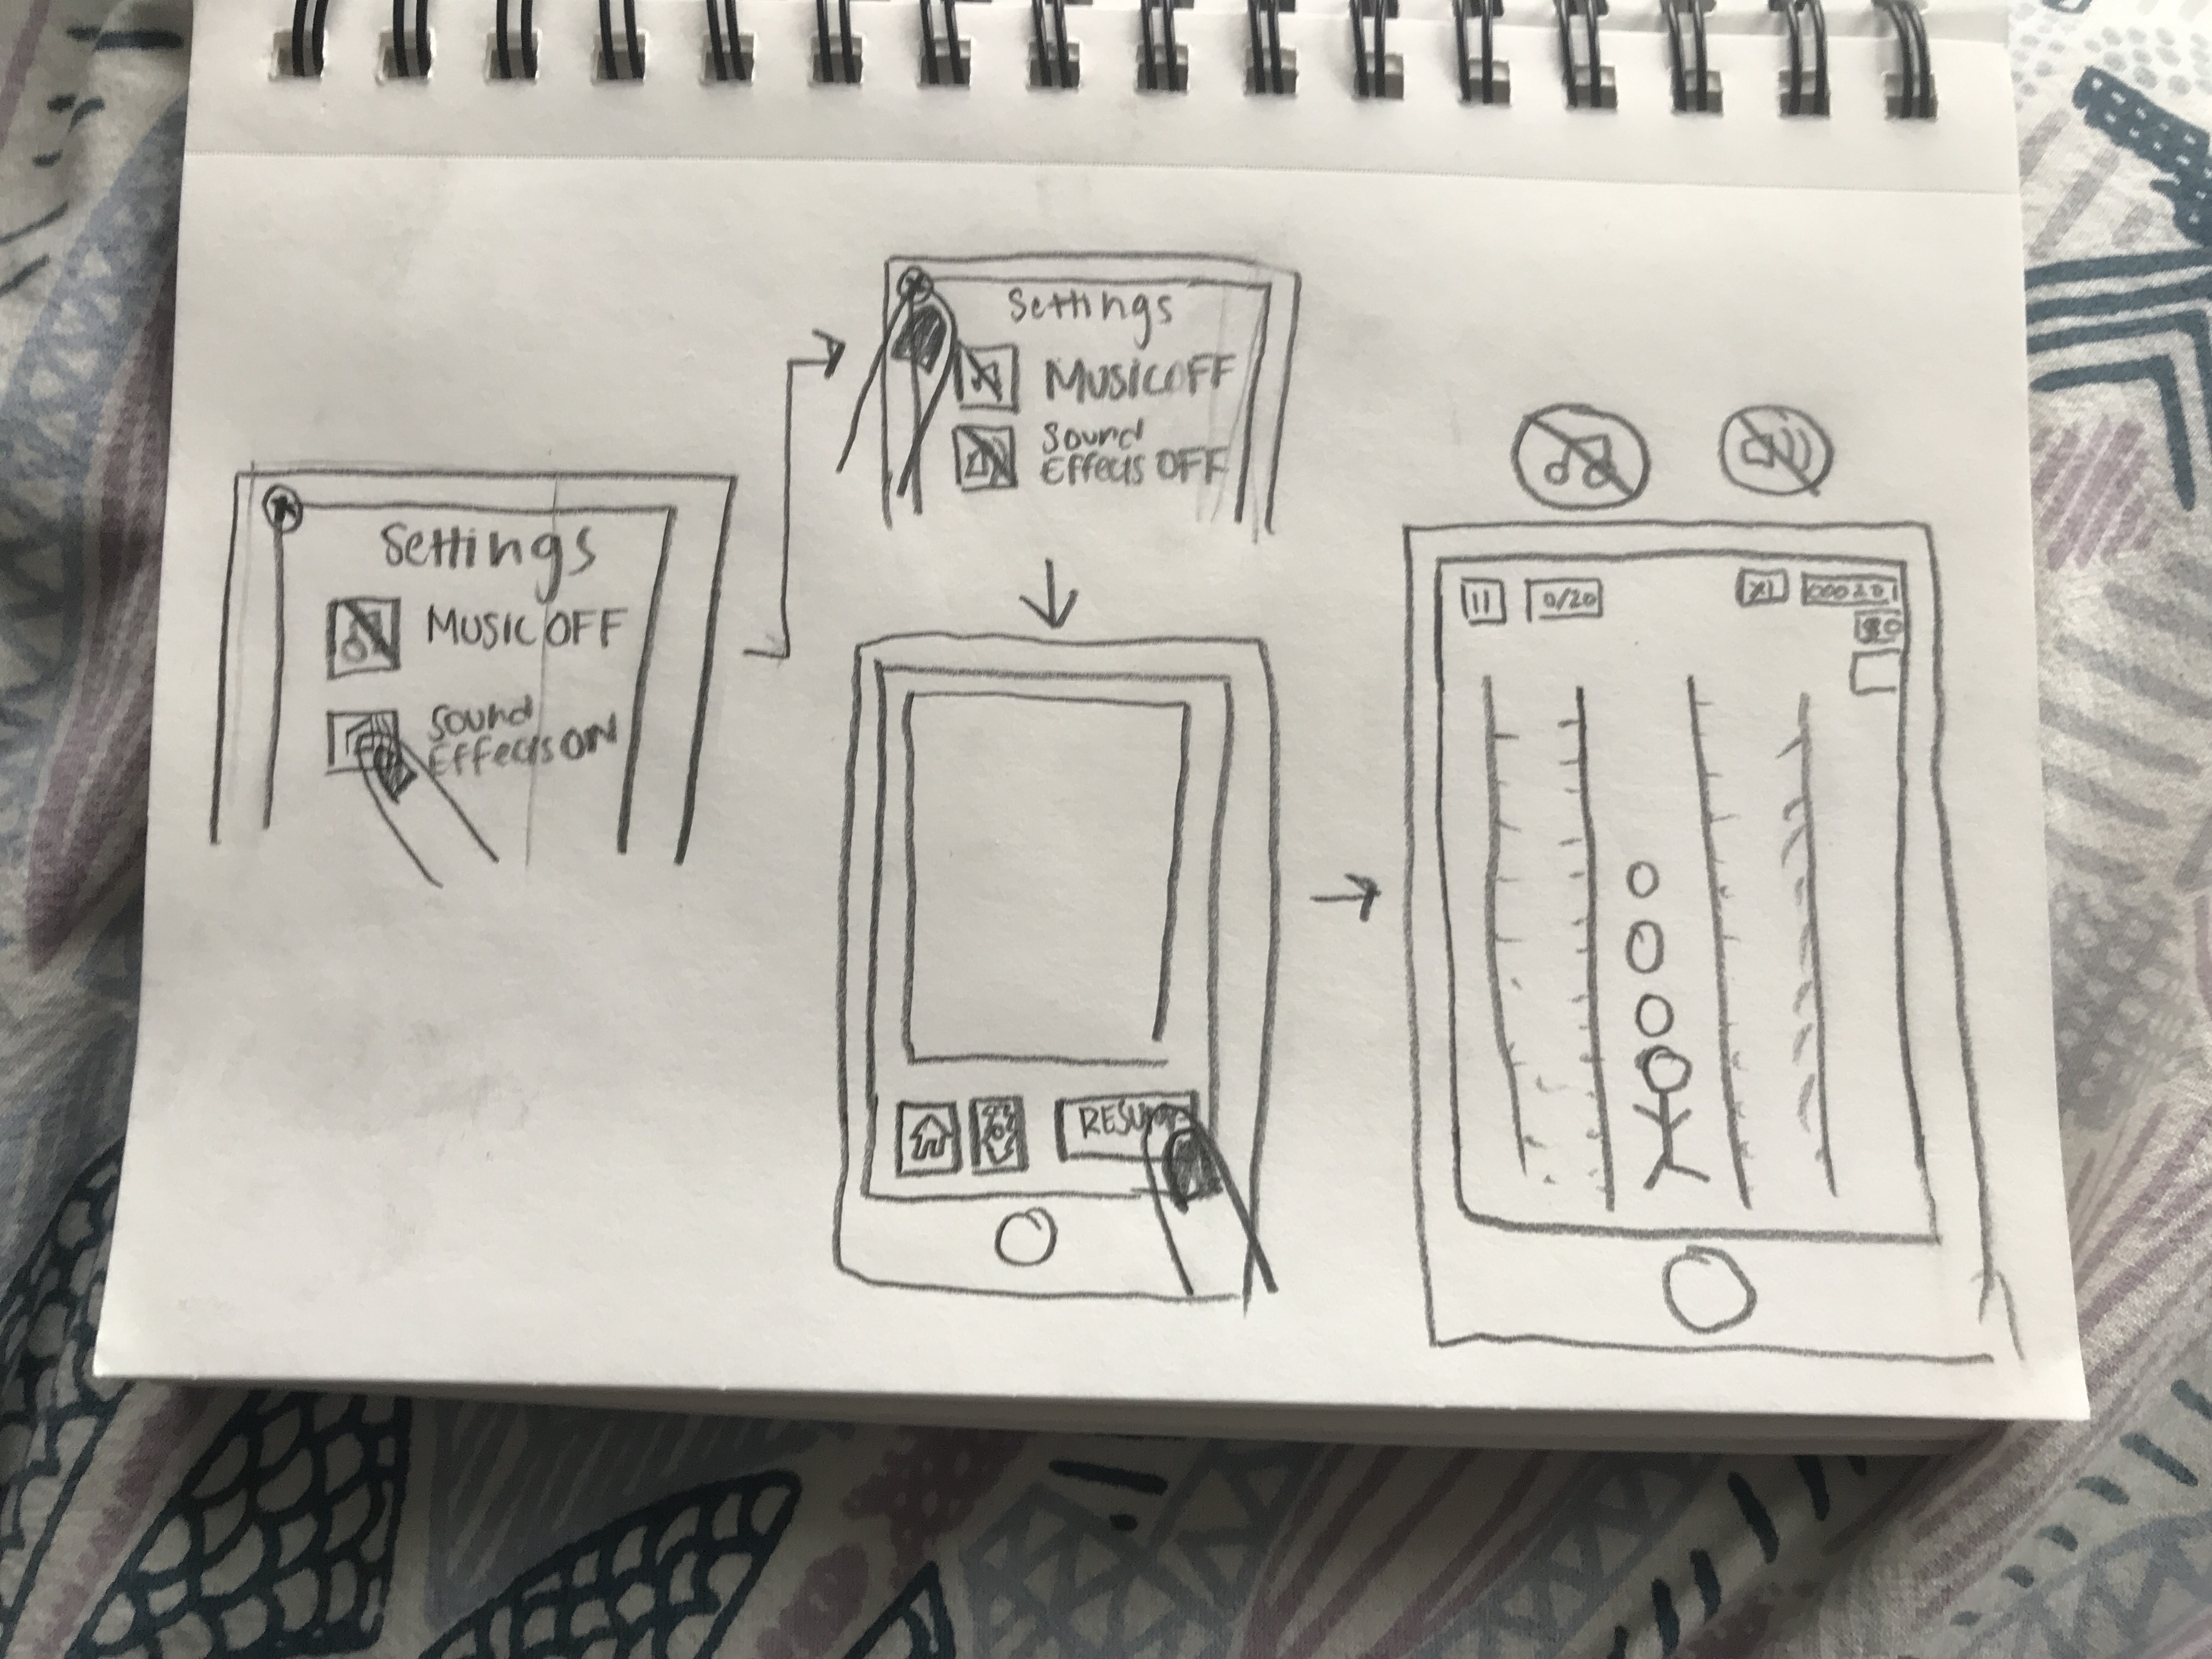 Settings
MUSIC OFF
Sound
Effects ON
Settings
MUSIC OFF
Sound
Effects OFF
RESUME
0/20
X1